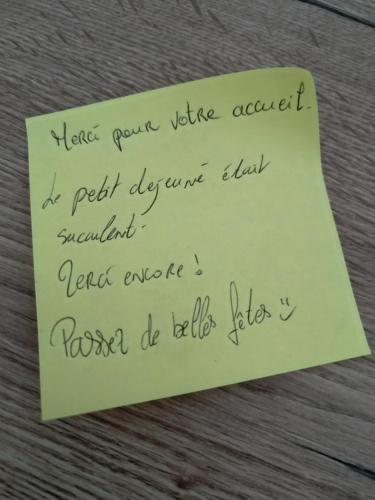 Merci pour votre accueil.
Le petit dejeuné était
succulent.
Merci encore !
Passez de belles fêtes :)